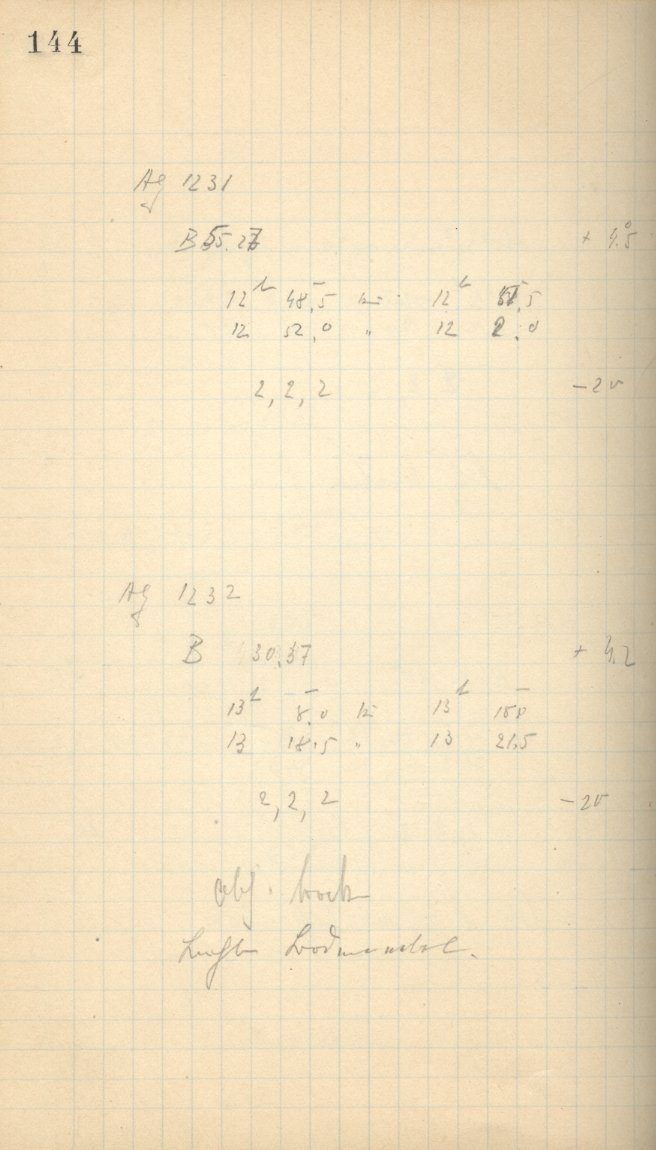 144
Ag 1231
B 55.27 + 4.5
12h 48.5 bis 12h 51.5
12 52.0 " 12 2.0
2, 2, 2 -20
Ag 1232
B 30.37 + 4.2
13h 8.0 bis 13h 18.0
13 18.5 " 13 21.5
2, 2, 2 -20
Obj.